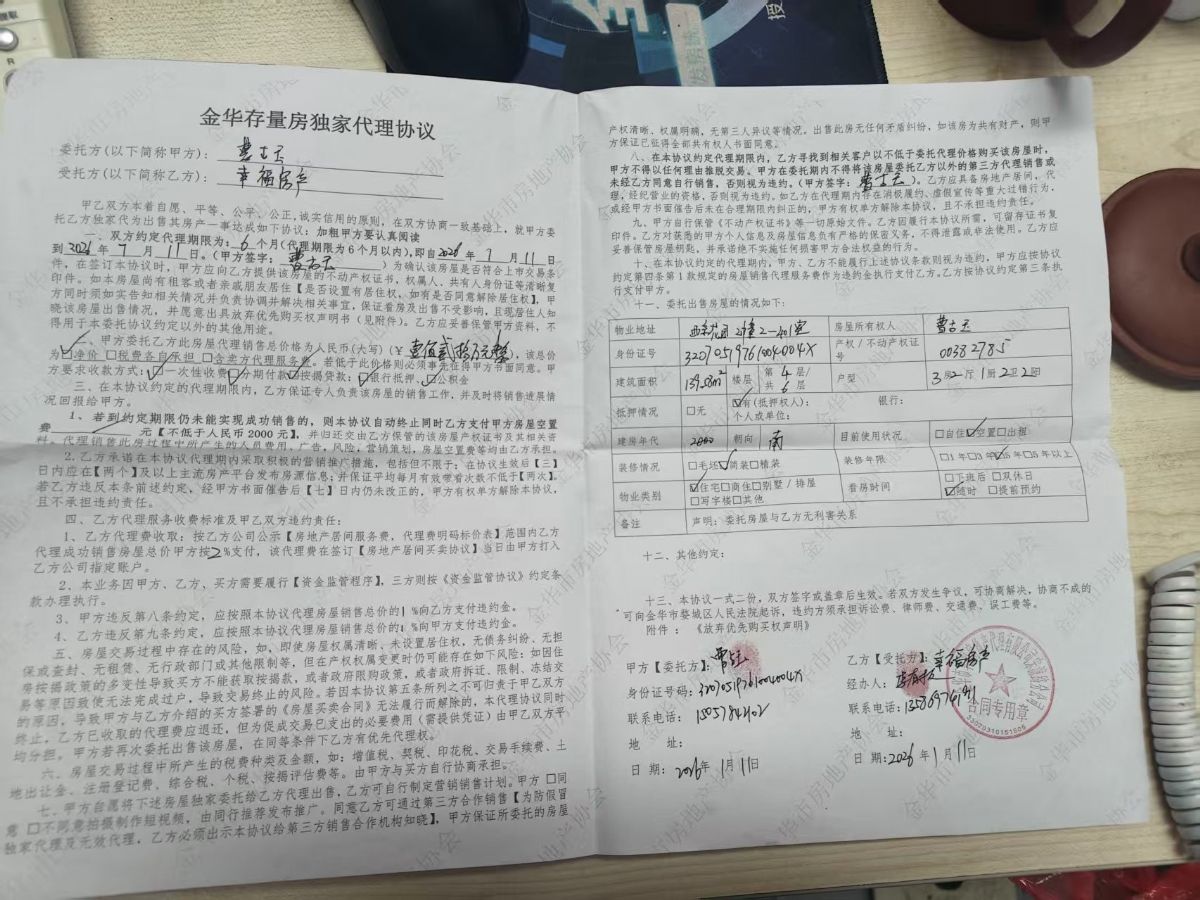 金华存量房独家代理协议
委托方(以下简称甲方):
受托方(以下简称乙方): 幸福房产
甲乙双方本着自愿、平等、公平、公正,诚实信用的原则,在双方协商一致基础上,就甲方委
托乙方独家代为出售其房产一事达成如下协议:加粗甲方要认真阅读
一、双方约定代理期限为: 6 个月(代理期限为6个月以内),即自2026年 1 月 11 日
到 2026 年 7 月 11 日。(甲方签字: )为确认该房屋是否符合上市交易条
件,在签订本协议时,甲方应向乙方提供该房屋的不动产权证书,权属人、共有人身份证等清晰复
印件。如本房屋尚有租客或者亲戚朋友居住【是否设置有居住权,如有是否同意解除居住权】,甲
方同时须如实告知相关情况并负责协调并解决相关事宜,保证看房及出售不受影响,且现居住人知
晓该房屋出售情况,并愿意出具放弃优先购买权声明书(见附件)。乙方应妥善保管甲方资料,不
得用于本委托协议约定以外的其他用途。
二、甲方委托乙方此房屋代理销售总价格为人民币(大写)(¥ 壹佰贰拾万元整 ),该总价
为☑净价 □税费各自承担 □含卖方代理服务费。若低于此价格则必须事先征得甲方书面同意。甲
方要求收款方式:☑一次性收费☑分期付款☑按揭贷款;☑银行抵押、☑公积金
三、在本协议约定的代理期限内,乙方保证专人负责该房屋的销售工作,并及时将销售进展情
况回报给甲方。
1、若到约定期限仍未能实现成功销售的,则本协议自动终止同时乙方支付甲方房屋空置
费 元【不低于人民币2000元】,并归还交由乙方保管的该房屋产权证书及其相关资
料。代理销售此房过程中所产生的人员费用,广告,风险,营销策划,房屋空置费等均由乙方承担。
2、乙方承诺在本协议代理期内采取积极的营销推广措施,包括但不限于:在协议生效后【三】
日内应在【两个】及以上主流房产平台发布房源信息;并保证平均每月有效带看次数不低于【两次】。
若乙方违反本条前述约定,经甲方书面催告后【七】日内仍未改正的,甲方有权单方解除本协议,
且不承担违约责任。
四、乙方代理服务收费标准及甲乙双方违约责任:
1、乙方代理费收取:按乙方公司公示【房地产居间服务费,代理费明码标价表】范围内乙方
代理成功销售房屋总价甲方按2%支付,该代理费在签订【房地产居间买卖协议】当日由甲方打入
乙方公司指定账户。
2、本业务因甲方、乙方、买方需要履行【资金监管程序】,三方则按《资金监管协议》约定条
款办理执行。
3、甲方违反第八条约定,应按照本协议代理房屋销售总价的1%向乙方支付违约金。
4、乙方违反第九条约定,应按照本协议代理房屋销售总价的1%向甲方支付违约金。
五、房屋交易过程中存在的风险,如,即使房屋权属清晰、未设置居住权,无债务纠纷、无担
保或查封、无租赁、无行政部门或其他限制等,但在产权权属变更时仍可能存在如下风险:如因住
房按揭政策的多变性导致买方不能获取按揭款,或者政府限购政策,或者政府拆迁、限制、冻结交
易等原因致使无法完成过户,导致交易终止的风险。若因本协议第五条所列之不可归责于甲乙双方
的原因,导致甲方与乙方介绍的买方签署的《房屋买卖合同》无法履行而解除的,本代理协议同时
终止,乙方已收取的代理费应退还,但为促成交易已支出的必要费用(需提供凭证)由甲乙双方平
均分担。甲方若再次委托出售该房屋,在同等条件下乙方有优先代理权。
六、房屋交易过程中所产生的税费种类及金额,如:增值税、契税、印花税、交易手续费、土
地出让金、注册登记费、综合税、个税、按揭评估费等。由甲方与买方自行协商承担。
七、甲方自愿将下述房屋独家委托给乙方代理出售,乙方可自行制定营销销售计划。甲方 □同
意 □不同意拍摄制作短视频,由同行推荐发布推广。同意乙方可通过第三方合作销售【为防假冒
独家代理及无效代理,乙方必须出示本协议给第三方销售合作机构知晓】,甲方保证所委托的房屋
产权清晰、权属明确,无第三人异议等情况。出售此房无任何矛盾纠纷,如该房为共有财产,则甲
方保证已征得全部共有权人书面同意。
八、在本协议约定代理期限内,乙方寻找到相关客户以不低于委托代理价格购买该房屋时,
甲方不得以任何理由推脱交易。甲方在委托期内不得将该房屋委托乙方以外的第三方代理销售或
未经乙方同意自行销售,否则视为违约。(甲方签字: )。乙方应具备房地产居间,代
理,经纪营业的资格,否则视为违约。如乙方在代理期内存在消极履约、虚假宣传等重大过错行为,
或经甲方书面催告后未在合理期限内纠正的,甲方有权单方解除本协议,且不承担违约责任。
九、甲方自行保管《不动产权证书》等一切原始文件。乙方因履行本协议所需,可留存证书复
印件。乙方对获悉的甲方个人信息及房屋信息负有严格的保密义务,不得泄露或非法使用。乙方应
妥善保管房屋钥匙,并承诺绝不实施任何损害甲方合法权益的行为。
十、在本协议约定的代理期内,甲方、乙方不能履行上述协议条款则视为违约,甲方应按协议
约定第四条第1款规定的房屋销售代理服务费作为违约金执行支付乙方。乙方按协议约定第三条执
行支付甲方。
十一、委托出售房屋的情况如下:
物业地址 2-401室 房屋所有权人
身份证号 32070519761004004X 产权/不动产权证号 00382785
建筑面积 139.58m² 楼层 第 4 层/共 6 层 户型 3房2厅1厨2卫2阳
抵押情况 □无 ☑有(抵押权人): 银行:
个人或单位:
建房年代 2000 朝向 南 目前使用状况 □自住☑空置□出租
装修情况 □毛坯☑简装□精装 装修年限 □1年□3年☑5年□5年以上
物业类别 ☑住宅□商住□别墅/排屋 □写字楼□其他 看房时间 □下班后 □双休日 ☑随时 □提前预约
备注 声明:委托房屋与乙方无利害关系
十二、其他约定:
十三、本协议一式二份,双方签字或盖章后生效。若双方发生争议,可协商解决,协商不成的
可向金华市婺城区人民法院起诉,违约方须承担诉讼费、律师费、交通费、误工费等。
附件: 《放弃优先购买权声明》
甲方【委托方】:
身份证号码: 32070519761004004X
联系电话: 15057842102
地 址:
日 期: 2026年 1月11日
乙方【受托方】: 幸福房产
经办人:
联系电话: 13589741911
地 址:
日 期: 2026 年 1 月 11 日
合同专用章
金华市房地产业协会